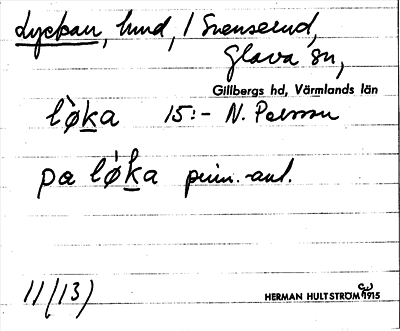 Lyckan, hind, / Svenserud,
Glava sn,
Gillbergs hd, Värmlands län
lø̀ka 15:- N. Persson
pa lø̀ka prim.-aut.
11(13)
HERMAN HULTSTRÖM 1915